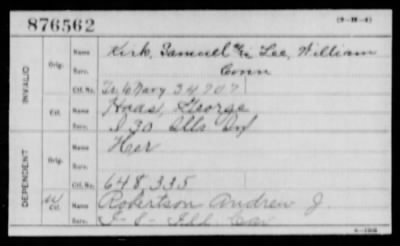 876562
(3-1865)
INVALID
Orig. Name Kirk, Samuel Lee, William
Serv. Conn
Ctf. No. Navy 34707
Ctf. Name Haas, George
Serv. D 30 Ills Inf
DEPENDENT
Orig. Name Her
Serv.
Ctf. No. 648,335
W Ctf. Name Robertson Andrew J.
Serv. Ill Cav